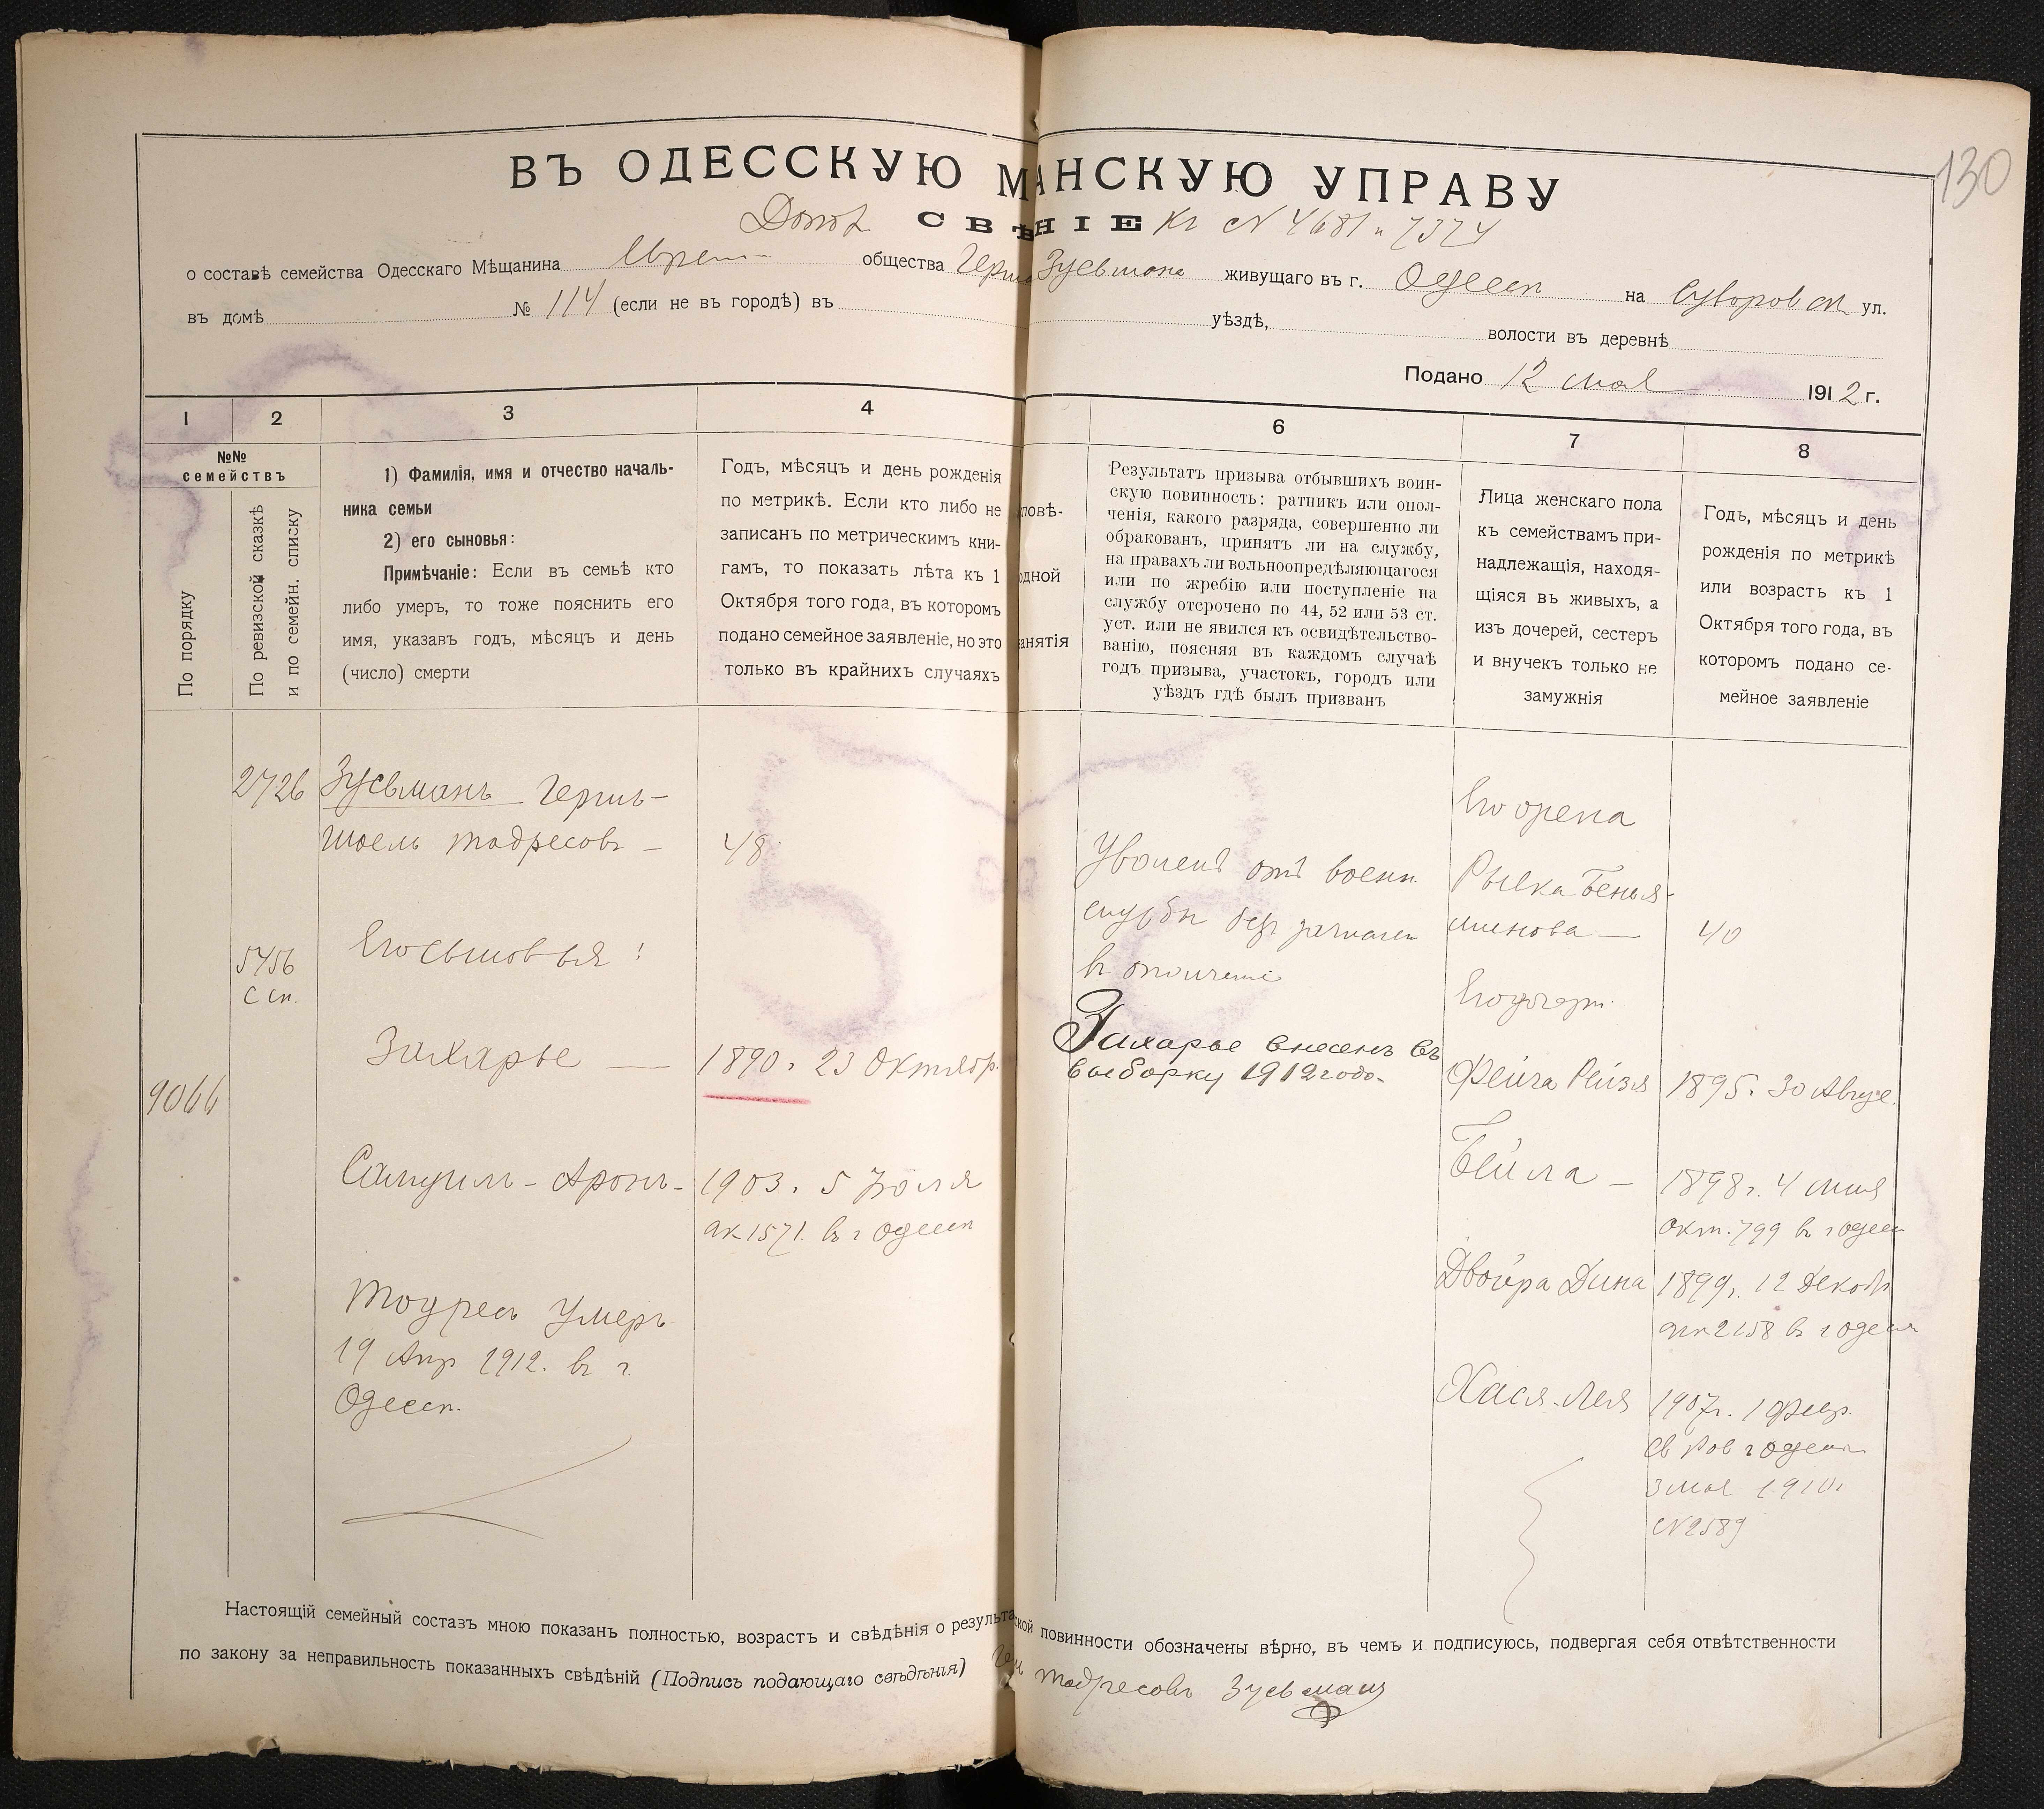 130
ВЪ ОДЕССКУЮ МАНСКУЮ УПРАВУ
СВѢНІЕ Къ № 4681 и 7374
о составѣ семейства Одесскаго Мѣщанина Еврей общества Герш Зусьмана живущаго въ г. Одессѣ на Суворовск ул.
въ домѣ № 114 (если не въ городѣ) въ уѣздѣ, волости въ деревнѣ
Подано 12 мая 1912 г.
1 2 3 4 6 7 8
№№
семействъ
По порядку
По ревизской сказкѣ
и по семейн. списку
1) Фамилія, имя и отчество началь-
ника семьи
2) его сыновья:
Примѣчаніе: Если въ семьѣ кто
либо умеръ, то тоже пояснить его
имя, указавъ годъ, мѣсяцъ и день
(число) смерти
Годъ, мѣсяцъ и день рожденія
по метрикѣ. Если кто либо не
записанъ по метрическимъ кни-
гамъ, то показать лѣта къ 1
Октября того года, въ которомъ
подано семейное заявленіе, но это
только въ крайнихъ случаяхъ
повѣ-
одной
анятія
Результатъ призыва отбывшихъ воин-
скую повинность: ратникъ или опол-
ченія, какого разряда, совершенно ли
обракованъ, принятъ ли на службу,
на правахъ ли вольноопредѣляющагося
или по жребію или поступленіе на
службу отсрочено по 44, 52 или 53 ст.
уст. или не явился къ освидѣтельство-
ванію, поясняя въ каждомъ случаѣ
годъ призыва, участокъ, городъ или
уѣздъ гдѣ былъ призванъ
Лица женскаго пола
къ семействамъ при-
надлежащія, находя-
щіяся въ живыхъ, а
изъ дочерей, сестеръ
и внучекъ только не
замужнія
Годъ, мѣсяцъ и день
рожденія по метрикѣ
или возрастъ къ 1
Октября того года, въ
которомъ подано се-
мейное заявленіе
2726
Зусьманъ Герш-
Шоель Тодресовъ - 48
5456
С сп.
Его сыновья:
9066
Захарье — 1890 г. 23 Октябр.
Самуилъ-Аронъ - 1903 г. 5 Іюля
ак 1571. въ г Одессѣ
Тодресъ Умеръ
19 Апр 1912. въ г.
Одессѣ.
Уволенъ отъ воен.
службы безъ зачислен
въ ополченіе
Захарье внесенъ въ
выборку 1912 года.
Его жена
Рывка Бенья-
минова — 40
Его дочери
Фейга Рейзя 1895 г. 30 Авгус.
Бейла - 1898 г. 4 мая
акт. 799 въ г Одесс
Двойра Дина 1899 г. 12 Декабр
акт 2158 въ г Одессѣ
Хася-Лея 1907 г. 1 Февр.
св Рав г Одессы
3 мая 1910 г
№ 2589
Настоящій семейный составъ мною показанъ полностью, возрастъ и свѣдѣнія о результа ской повинности обозначены вѣрно, въ чемъ и подписуюсь, подвергая себя отвѣтственности
по закону за неправильность показанныхъ свѣдѣній (Подпись подающаго свѣдѣнія) Тодресовъ Зусьманъ